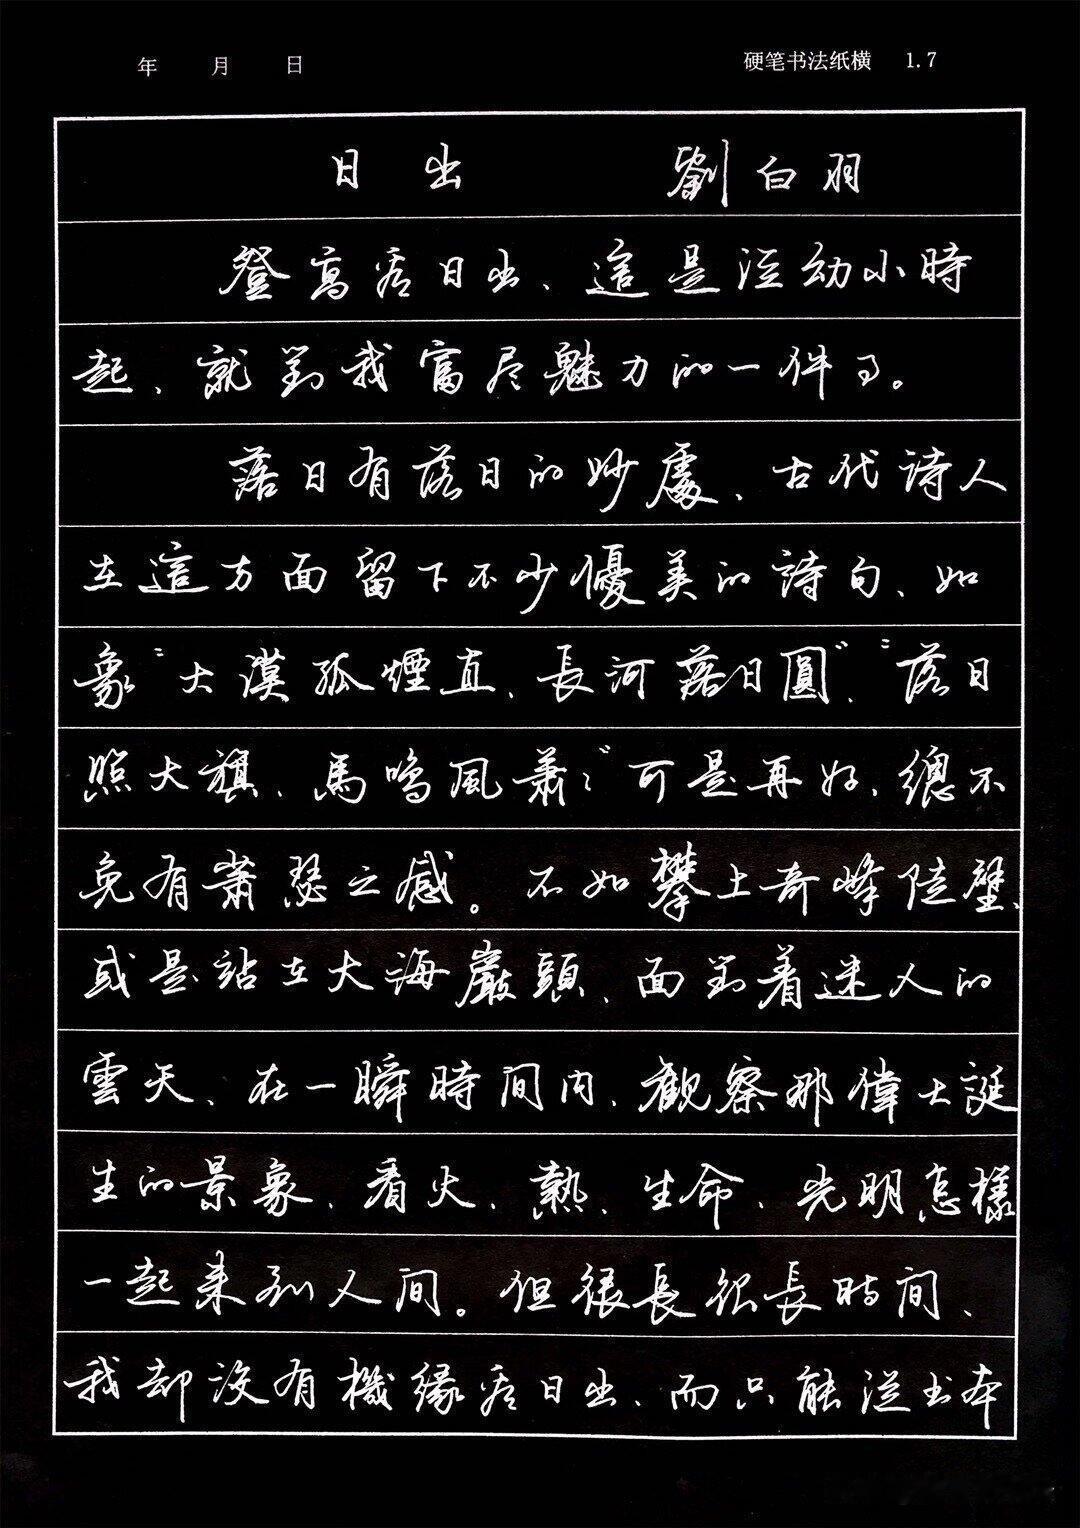 年 月 日 硬笔书法纸横 1.7
日出 劉白羽
登高看日出、這是從幼小時
起、就對我富盡魅力的一件事。
落日有落日的妙處、古代詩人
在這方面留下不少優美的詩句、如
象“大漠孤煙直、長河落日圓”、“落日
照大旗、馬鳴風蕭〻”可是再好、總不
免有蕭瑟之感。不如攀上奇峰陡壁、
或是站在大海巖頭、面對着迷人的
雲天、在一瞬時間内、觀察那偉大誕
生的景象、看火、熱、生命、光明怎樣
一起来到人间。但很長很長時间、
我却沒有機緣看日出、而只能從书本